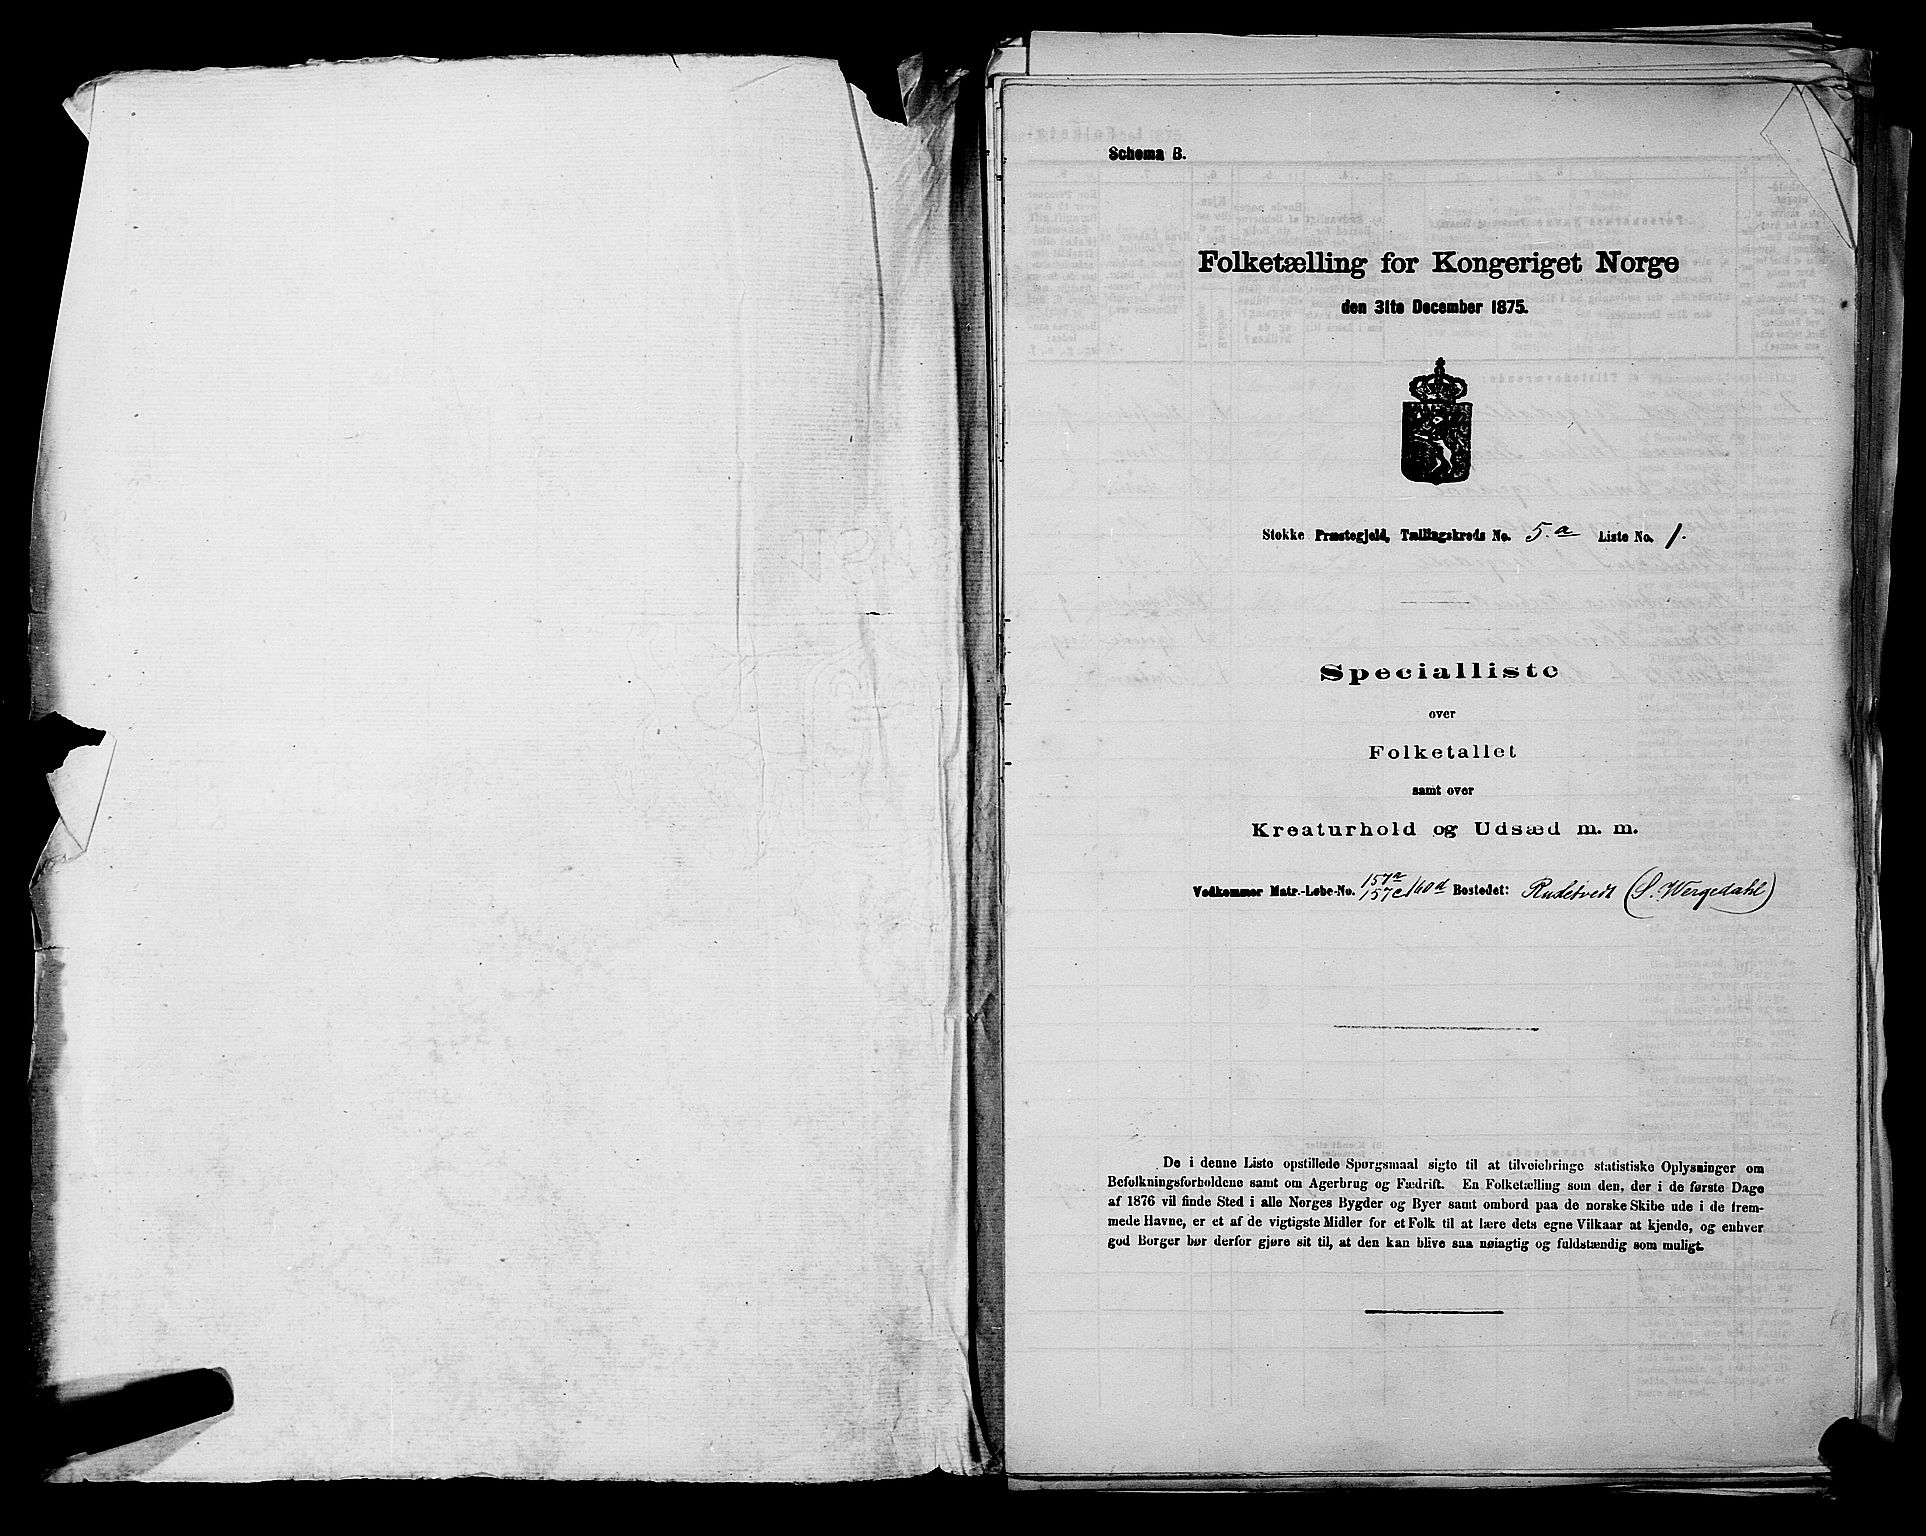 Schema B.
Folketælling for Kongeriget Norge
den 31te December 1875.
Stokke Præstegjeld, Tællingskreds No. 5.a Liste No. 1.
Specialliste
over
Folketallet
samt over
Kreaturhold og Udsæd m. m.
Vedkommer Matr.-Løbe-No. 157a 157c 160d Bostedet: Rudetvedt (S. Wergedahl)
De i denne Liste opstillede Spørgsmaal sigte til at tilveiebringe statistiske Oplysninger om
Befolkningsforholdene samt om Agerbrug og Fædrift. En Folketælling som den, der i de første Dage
af 1876 vil finde Sted i alle Norges Bygder og Byer samt ombord paa de norske Skibe ude i de frem-
mede Havne, er et af de vigtigste Midler for et Folk til at lære dets egne Vilkaar at kjende, og enhver
god Borger bør derfor gjøre sit til, at den kan blive saa nøiagtig og fuldstændig som muligt.